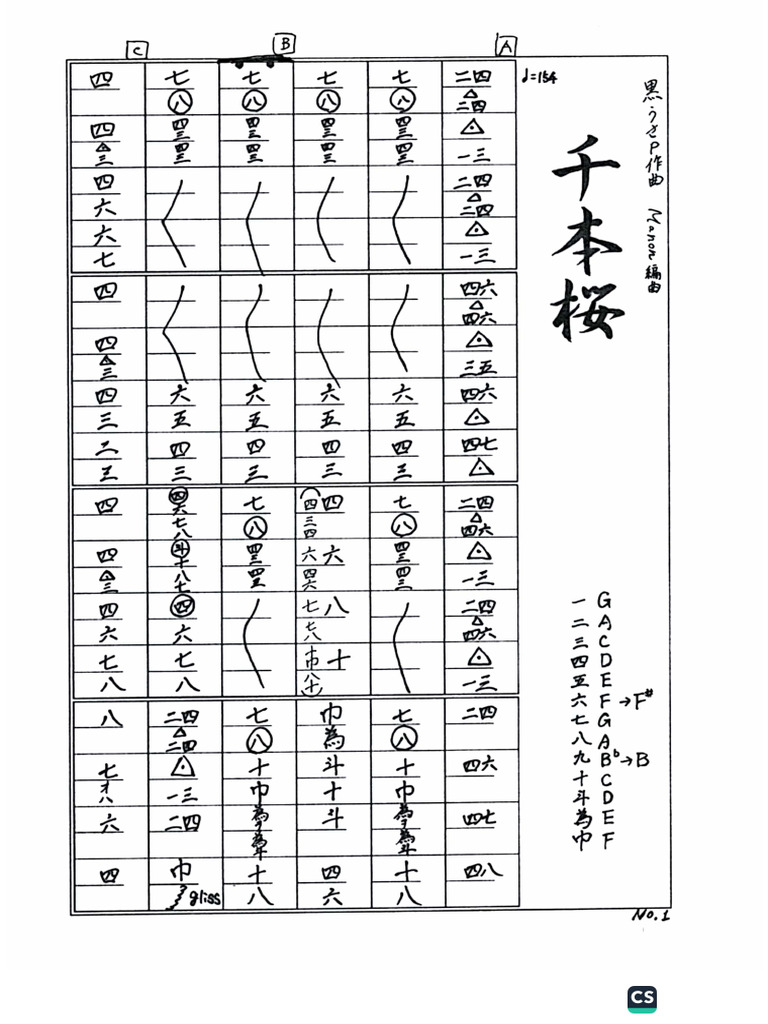 千本桜
黒うさP作曲
編曲
♩=154
一 G
二 A
三 C
四 D
五 E
六 F→F#
七 G
八 A
九 Bb→B
十 C
斗 D
為 E
巾 F
A
二四 △ 二四 △ 一三 二四 △ 二四 △ 一三
四六 △ 四六 △ 三五 四六 △ 四七 △
二四 △ 四六 △ 一三 二四 △ 四六 △ 一三
二四 四六 四七 四八
七 八 四三 四三
六 五 四 三
七 八 四三 四三
七 八 十 巾 為 為斗 十 八
七 八 四三 四三
六 五 四 三
四 六 八 十
四 三四 六 四六 七 七八 十巾 八十
巾 為 斗 十 斗 四 六
B
七 八 四三 四三
六 五 四 三
七 八 四三
七 八 十 巾 為 為斗 十 八
七 八 四三 四三
六 五 四 三
四 六 七 八 斗 十 八 七 四 六 七 八
二四 △ 二四 △ 一三 二四 巾 gliss
C
四 四 △ 三 四 六 六 七
四 四 △ 三 四 三 二 三
四 四 △ 三 四 六 七 八
八 七 オ八 六 四
No.1
CS